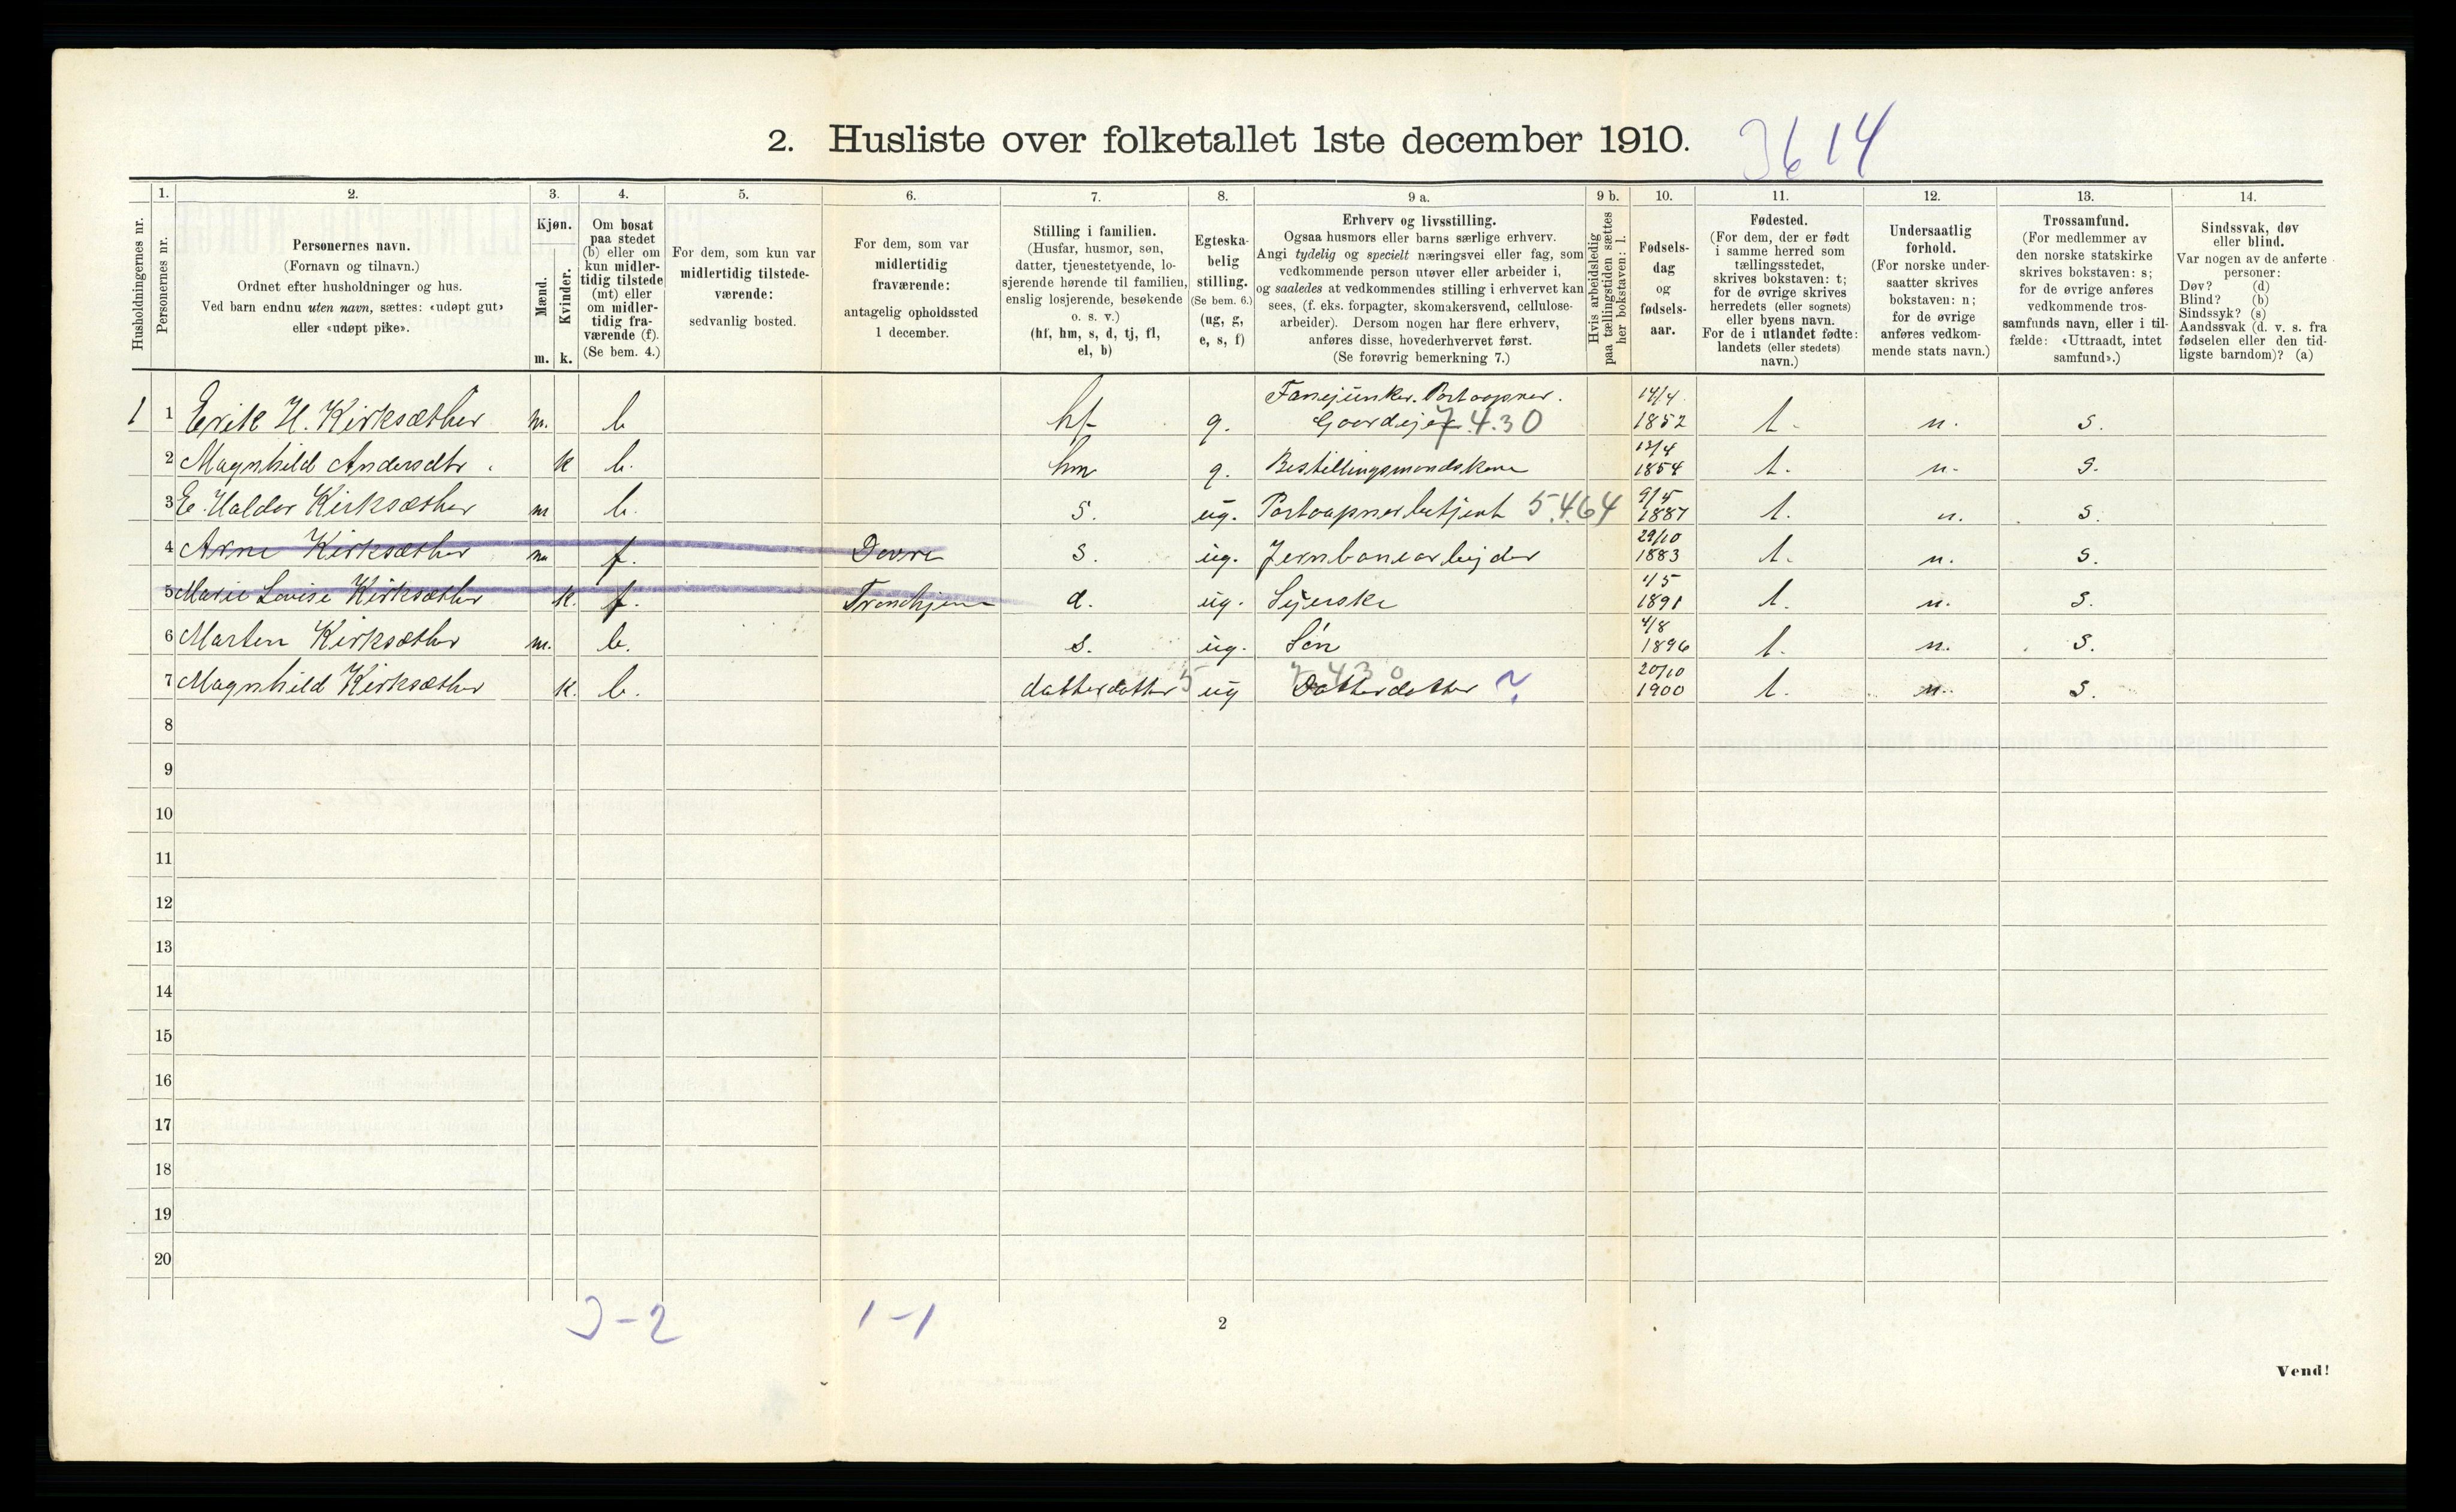 2. Husliste over folketallet 1ste december 1910.
3614
1. 2. 3. 4. 5. 6. 7. 8. 9 a. 9 b. 10. 11. 12. 13. 14.
Husholdningernes nr.
Personernes nr.
Personernes navn.
(Fornavn og tilnavn.)
Ordnet efter husholdninger og hus.
Ved barn endnu uten navn, sættes: «udøpt gut»
eller «udøpt pike».
Kjøn.
Mænd.
Kvinder.
m. k.
Om bosat
paa stedet
(b) eller om
kun midler-
tidig tilstede
(mt) eller
om midler-
tidig fra-
værende (f).
(Se bem. 4.)
For dem, som kun var
midlertidig tilstede-
værende:
sedvanlig bosted.
For dem, som var
midlertidig
fraværende:
antagelig opholdssted
1 december.
Stilling i familien.
(Husfar, husmor, søn,
datter, tjenestetyende, lo-
sjerende hørende til familien,
enslig losjerende, besøkende
o. s. v.)
(hf, hm, s, d, tj, fl,
el, b)
Egteska-
belig
stilling.
(Se bem. 6.)
(ug, g,
e, s, f)
Erhverv og livsstilling.
Ogsaa husmors eller barns særlige erhverv.
Angi tydelig og specielt næringsvei eller fag, som
vedkommende person utøver eller arbeider i,
og saaledes at vedkommendes stilling i erhvervet kan
sees, (f. eks. forpagter, skomakersvend, cellulose-
arbeider). Dersom nogen har flere erhverv,
anføres disse, hovederhvervet først.
(Se forøvrig bemerkning 7.)
Hvis arbeidsledig
paa tællingstiden sættes
her bokstaven: l.
Fødsels-
dag
og
fødsels-
aar.
Fødested.
(For dem, der er født
i samme herred som
tællingsstedet,
skrives bokstaven: t;
for de øvrige skrives
herredets (eller sognets)
eller byens navn.
For de i utlandet fødte:
landets (eller stedets)
navn.)
Undersaatlig
forhold.
(For norske under-
saatter skrives
bokstaven: n;
for de øvrige
anføres vedkom-
mende stats navn.)
Trossamfund.
(For medlemmer av
den norske statskirke
skrives bokstaven: s;
for de øvrige anføres
vedkommende tros-
samfunds navn, eller i til-
fælde: «Uttraadt, intet
samfund».)
Sindssvak, døv
eller blind.
Var nogen av de anførte
personer:
Døv? (d)
Blind? (b)
Sindssyk? (s)
Aandssvak (d. v. s. fra
fødselen eller den tid-
ligste barndom)? (a)
Fanejunker. Postaapner. 14/4
1 1 Erik H. Kirksæther m. b hf g. Gaardejer 7.4.30 1852 t. n. s.
13/4
2 Magnhild Andersdtr. k b. hm g. Bestillingsmandskone 1854 t. n. s.
9/5
3 E. Haldor Kirksæther m b. s. ug. Postaapnerbetjent 5.464 1887 t. n. s.
29/10
4 Arne Kirksæther m f. Dovre s. ug. Jernbanearbejder 1883 t. n. s.
4/5
5 Marie Lovise Kirksæther k. f. Trondhjem d. ug. Syerske 1891 t. n. s.
4/8
6 Marten Kirksæther m. b. s. ug. Søn 1896 t. n. s.
7 4 3 0 20/10
7 Magnhild Kirksæther k. b. datterdatter 5 ug Datterdatter ? 1900 t. n. s.
8
9
10
11
12
13
14
15
16
17
18
19
20
3-2 1-1
2
Vend!